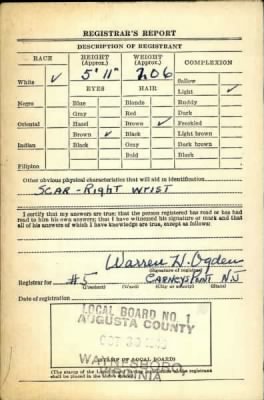 REGISTRAR'S REPORT
DESCRIPTION OF REGISTRANT
RACE HEIGHT (Approx.) WEIGHT (Approx.) COMPLEXION
5' 11" 206
White ✓ Sallow
EYES HAIR Light ✓
Negro Blue Blonde Ruddy
Gray Red Dark
Oriental Hazel Brown ✓ Freckled
Brown ✓ Black Light brown
Indian Black Gray Dark brown
Bald Black
Filipino
Other obvious physical characteristics that will aid in identification
SCAR - Right WRIST
I certify that my answers are true; that the person registered has read or has had
read to him his own answers; that I have witnessed his signature or mark and that
all of his answers of which I have knowledge are true, except as follows:
Warren H. Ogden
(Signature of registrar)
Registrar for #5 CARNEYS POINT NJ
(Precinct) (Ward) (City or county) (State)
Date of registration
LOCAL BOARD NO. 1
AUGUSTA COUNTY
OCT 30
WAYNESBORO
VIRGINIA
(STAMP OF LOCAL BOARD)
(The stamp of the Local Board
shall be placed in the above space.)